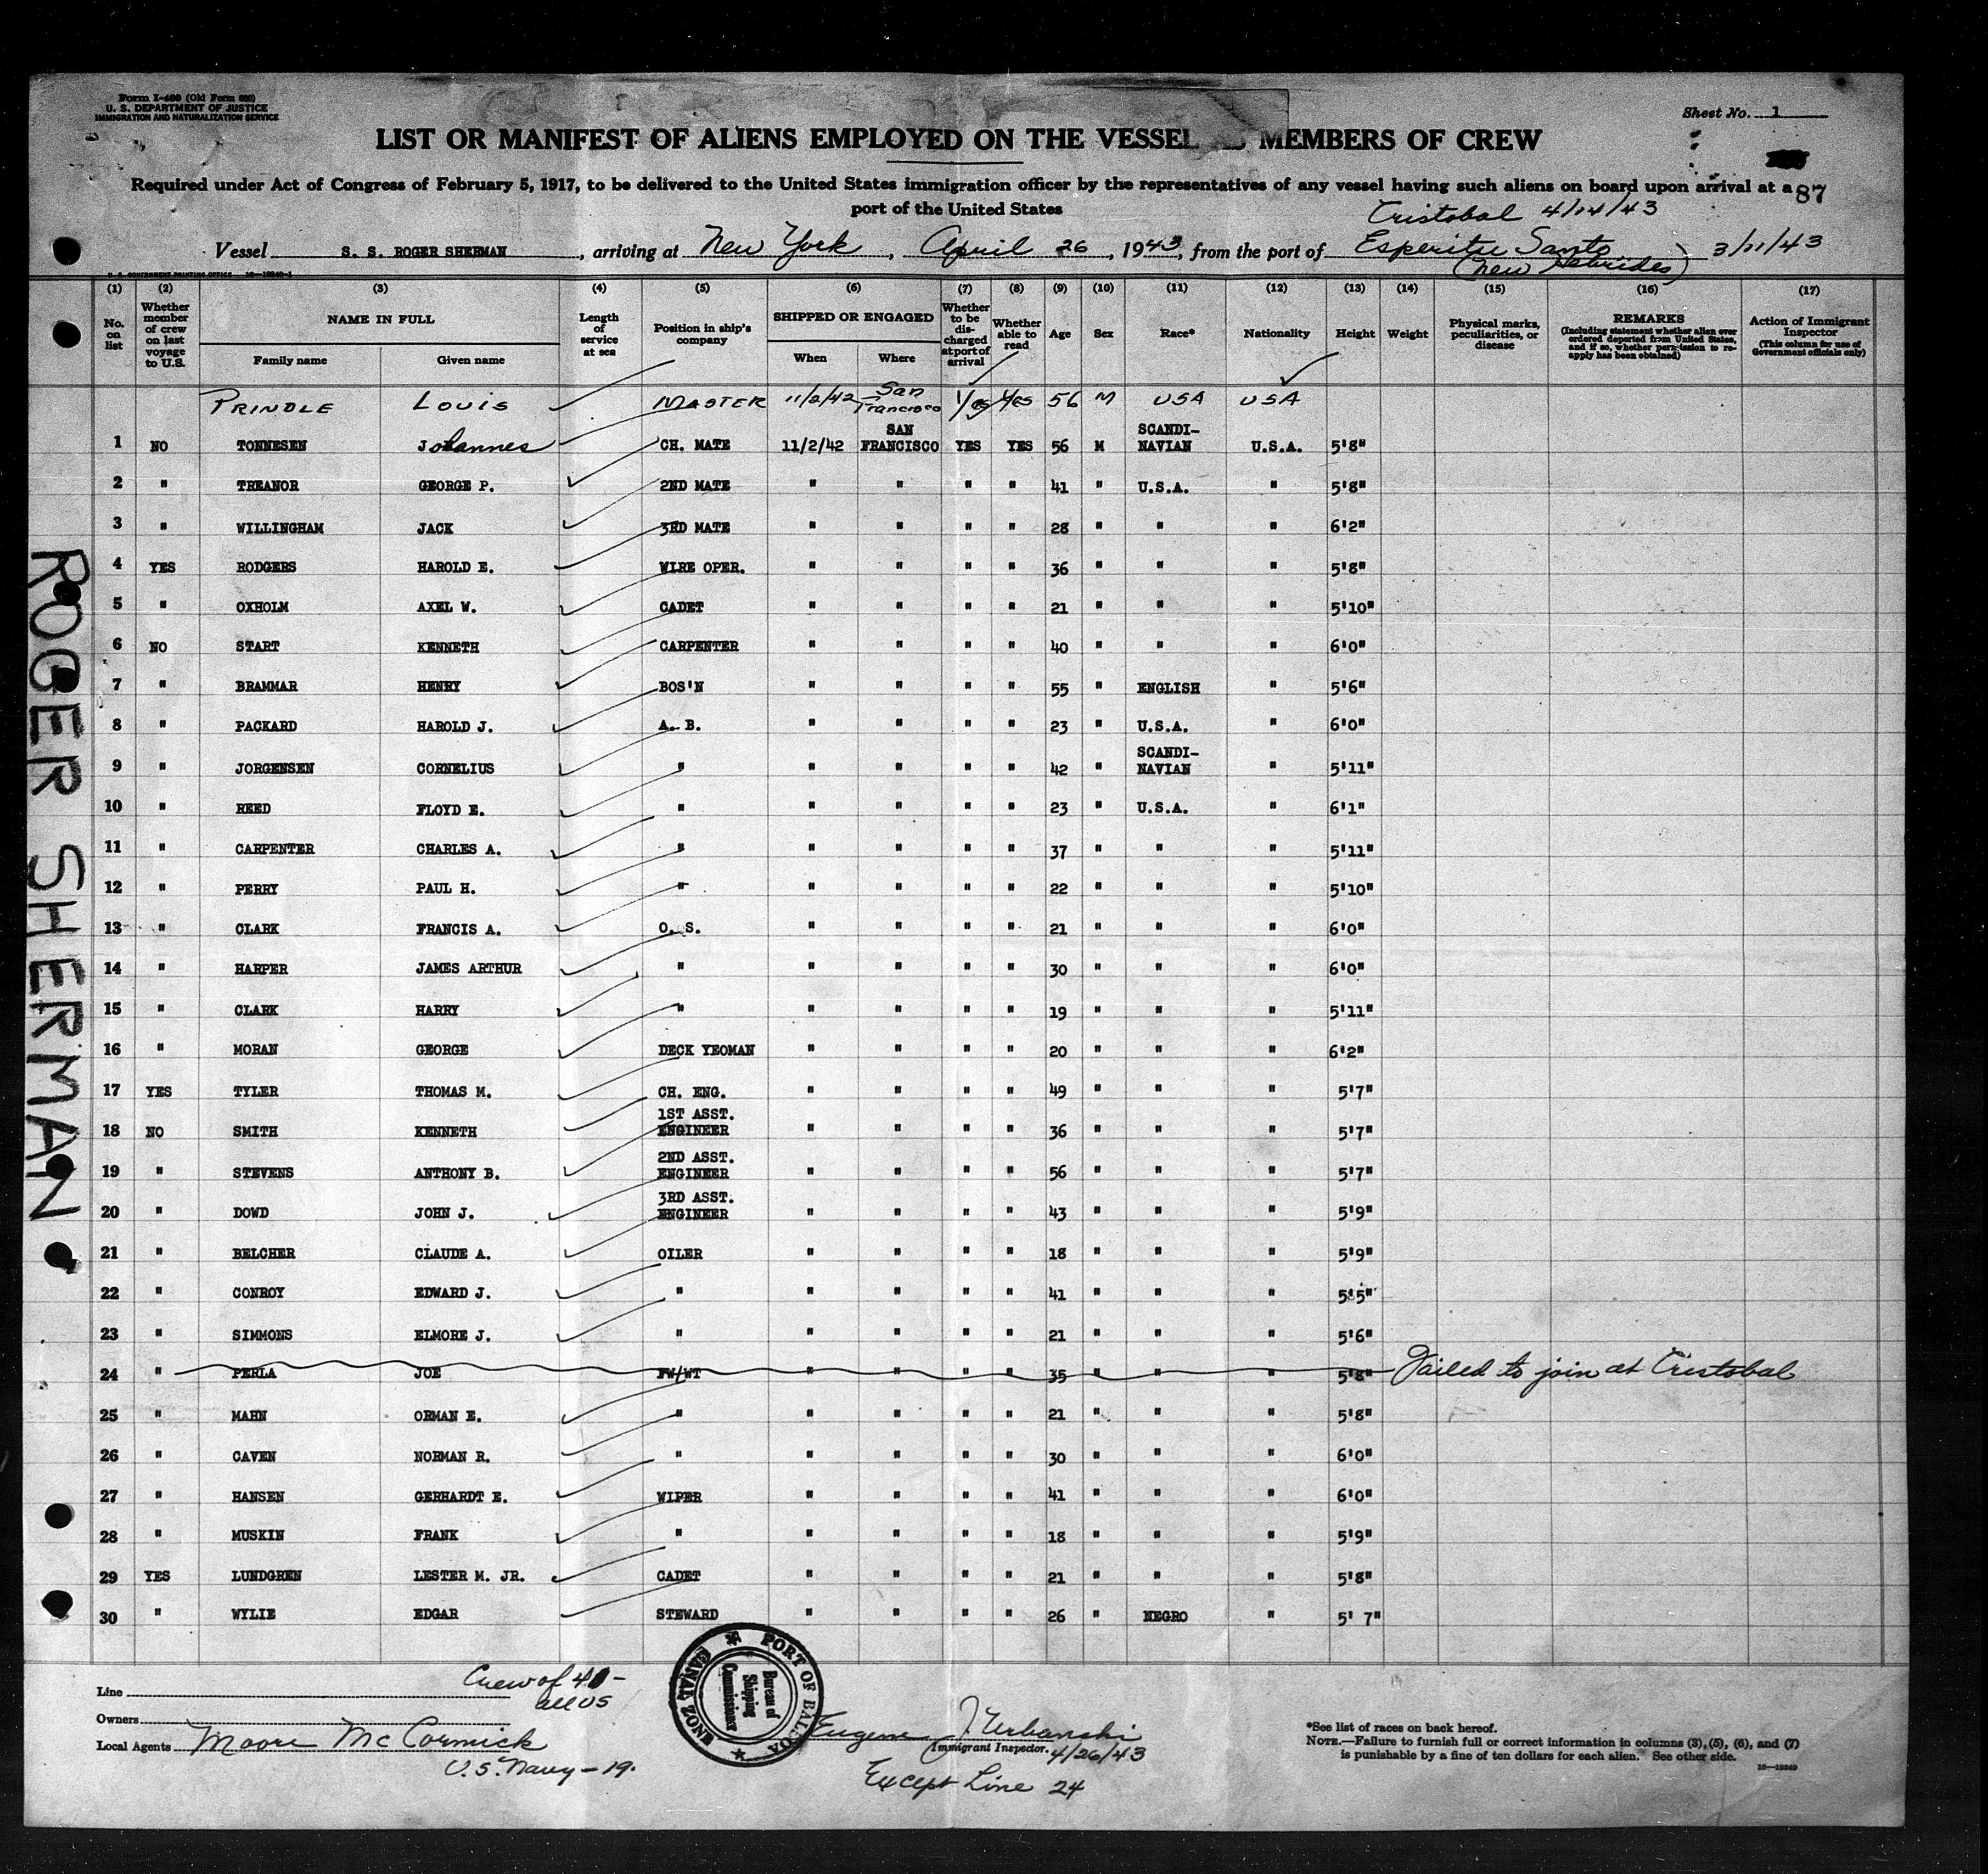 Form I-480 (Old Form 680)
U. S. DEPARTMENT OF JUSTICE
IMMIGRATION AND NATURALIZATION SERVICE
Sheet No. 1
LIST OR MANIFEST OF ALIENS EMPLOYED ON THE VESSEL MEMBERS OF CREW
Required under Act of Congress of February 5, 1917, to be delivered to the United States immigration officer by the representatives of any vessel having such aliens on board upon arrival at a
87
port of the United States
Cristobal 4/14/43
Vessel S. S. ROGER SHERMAN, arriving at New York, April 26, 1943, from the port of Esperitu Santo 3/11/43
(New Hebrides)
U. S. GOVERNMENT PRINTING OFFICE 16-19349-1
(1) (2) (3) (4) (5) (6) (7) (8) (9) (10) (11) (12) (13) (14) (15) (16) (17)
No. on list
Whether member of crew on last voyage to U.S.
NAME IN FULL
Family name Given name
Length of service at sea
Position in ship's company
SHIPPED OR ENGAGED
When Where
Whether to be discharged at port of arrival
Whether able to read
Age Sex Race* Nationality Height Weight
Physical marks, peculiarities, or disease
REMARKS
(Including statement whether alien ever ordered deported from United States, and if so, whether permission to reapply has been obtained)
Action of Immigrant Inspector
(This column for use of Government officials only)
PRINDLE LOUIS MASTER 11/2/42 San Francisco Yes Yes 56 M USA USA
1 NO TONNESEN Johannes CH. MATE 11/2/42 SAN FRANCISCO YES YES 56 M SCANDI-NAVIAN U.S.A. 5'8"
2 " TREANOR GEORGE P. 2ND MATE " " " " 41 " U.S.A. " 5'8"
3 " WILLINGHAM JACK 3RD MATE " " " " 28 " " " 6'2"
4 YES RODGERS HAROLD E. WIRE OPER. " " " " 36 " " " 5'8"
5 " OXHOLM AXEL W. CADET " " " " 21 " " " 5'10"
6 NO START KENNETH CARPENTER " " " " 40 " " " 6'0"
7 " BRAMMAR HENRY BOS'N " " " " 55 " ENGLISH " 5'6"
8 " PACKARD HAROLD J. A. B. " " " " 23 " U.S.A. " 6'0"
9 " JORGENSEN CORNELIUS " " " " " 42 " SCANDI-NAVIAN " 5'11"
10 " REED FLOYD E. " " " " " 23 " U.S.A. " 6'1"
11 " CARPENTER CHARLES A. " " " " " 37 " " " 5'11"
12 " PERRY PAUL H. " " " " " 22 " " " 5'10"
13 " CLARK FRANCIS A. O. S. " " " " 21 " " " 6'0"
14 " HARPER JAMES ARTHUR " " " " " 30 " " " 6'0"
15 " CLARK HARRY " " " " " 19 " " " 5'11"
16 " MORAN GEORGE DECK YEOMAN " " " " 20 " " " 6'2"
17 YES TYLER THOMAS M. CH. ENG. " " " " 49 " " " 5'7"
18 NO SMITH KENNETH 1ST ASST. ENGINEER " " " " 36 " " " 5'7"
19 " STEVENS ANTHONY B. 2ND ASST. ENGINEER " " " " 56 " " " 5'7"
20 " DOWD JOHN J. 3RD ASST. ENGINEER " " " " 43 " " " 5'9"
21 " BELCHER CLAUDE A. OILER " " " " 18 " " " 5'9"
22 " CONROY EDWARD J. " " " " " 41 " " " 5'5"
23 " SIMMONS ELMORE J. " " " " " 21 " " " 5'6"
24 " PERLA JOE FW/WT " " " " 35 " " " 5'8" Failed to join at Cristobal
25 " MAHN ORMAN E. " " " " " 21 " " " 5'8"
26 " CAVEN NORMAN R. " " " " " 30 " " " 6'0"
27 " HANSEN GERHARDT E. WIPER " " " " 41 " " " 6'0"
28 " MUSKIN FRANK " " " " " 18 " " " 5'9"
29 YES LUNDGREN LESTER M. JR. CADET " " " " 21 " " " 5'8"
30 " WYLIE EDGAR STEWARD " " " " 26 " NEGRO " 5' 7"
ROGER SHERMAN
Crew of 41 -
all US
Line
Owners
Local Agents Moore McCormick
U.S. Navy - 19.
PORT OF BALBOA CANAL ZONE
Bureau of Shipping Commissioner
Eugene J. Urbanski
Immigrant Inspector. 4/26/43
Except Line 24
*See list of races on back hereof.
NOTE.—Failure to furnish full or correct information in columns (3), (5), (6), and (7)
is punishable by a fine of ten dollars for each alien. See other side.
16—19349